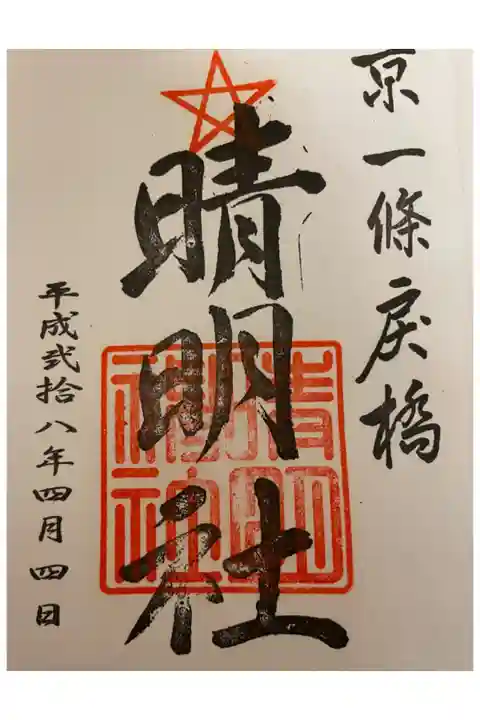 京一條戻橋
晴明社
晴明神社
平成弐拾八年四月四日